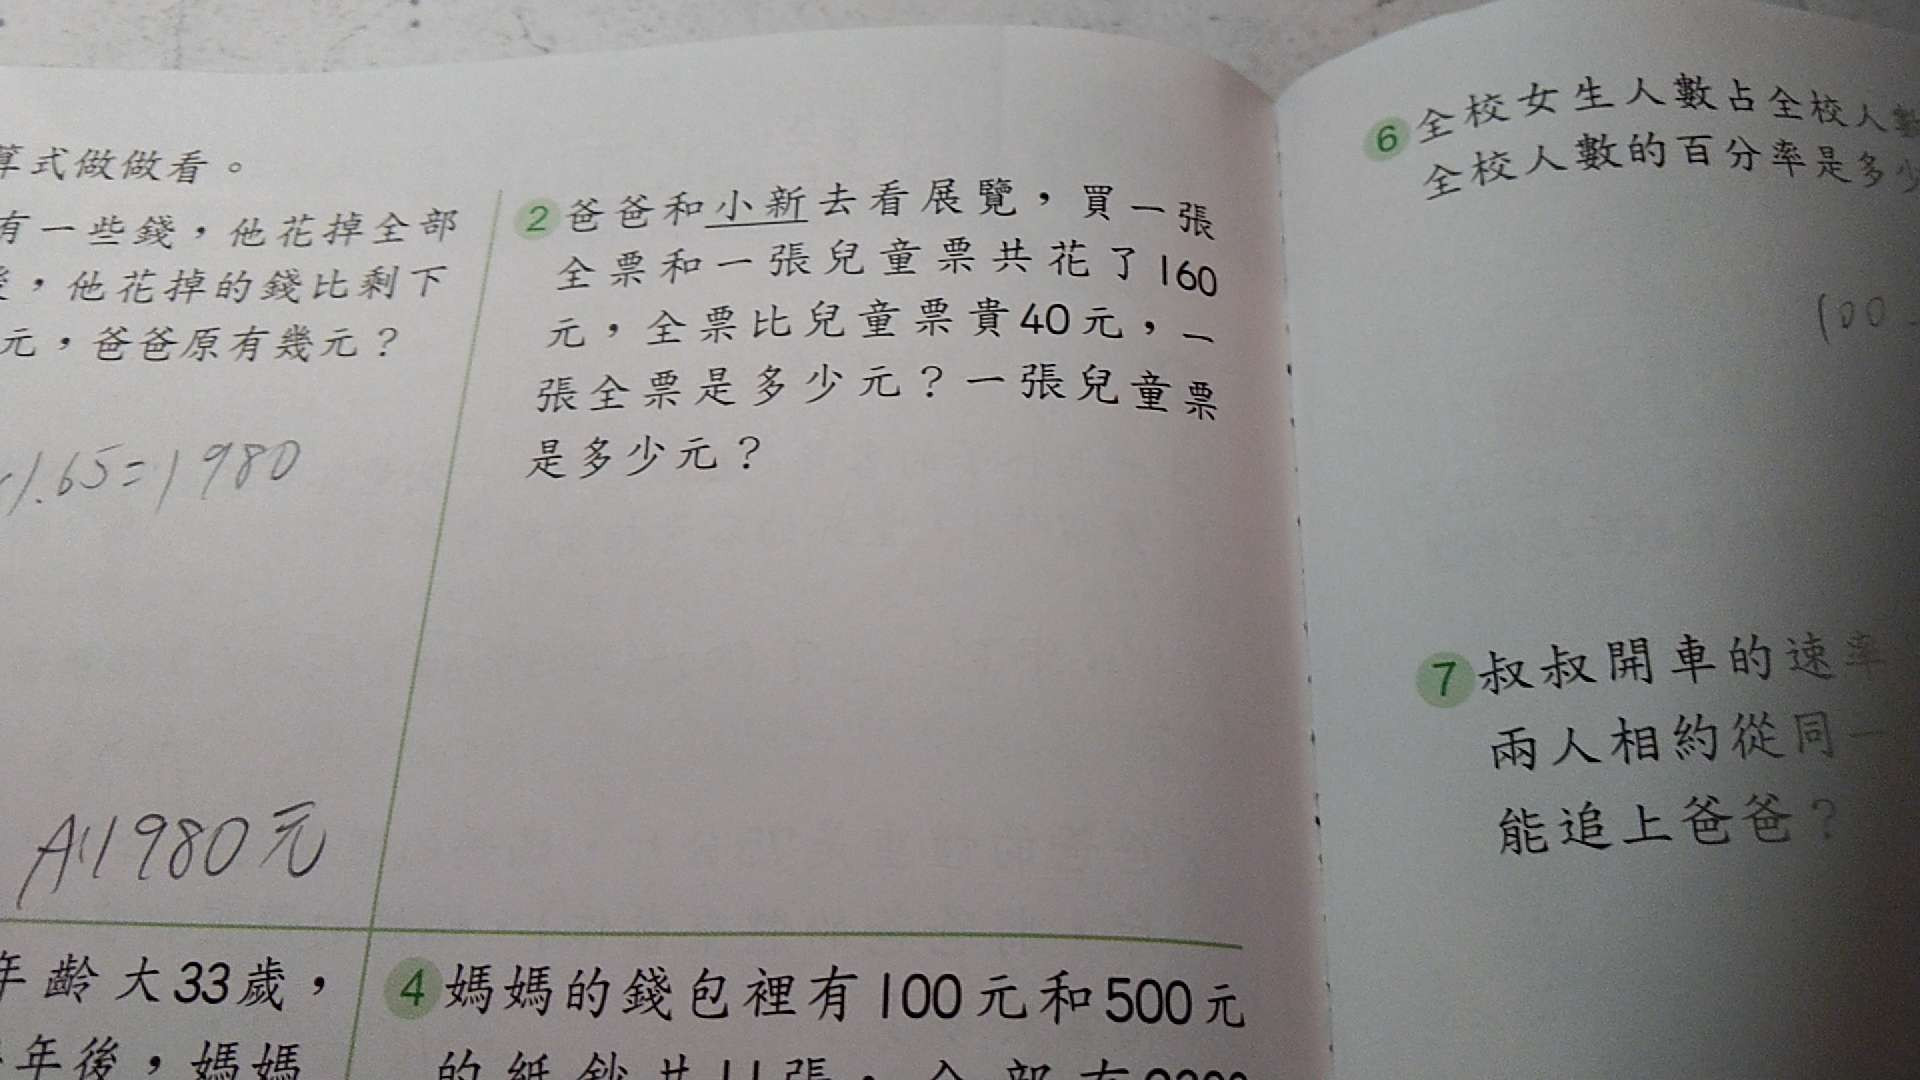 算式做做看。
有一些錢，他花掉全部
，他花掉的錢比剩下
元，爸爸原有幾元？
1.65=1980
A:1980元
2 爸爸和小新去看展覽，買一張
全票和一張兒童票共花了160
元，全票比兒童票貴40元，一
張全票是多少元？一張兒童票
是多少元？
年齡大33歲，
年後，媽媽
4 媽媽的錢包裡有100元和500元
的紙鈔共11張，全部有
6 全校女生人數占全校人數
全校人數的百分率是多少
100
7 叔叔開車的速率
兩人相約從同一
能追上爸爸？